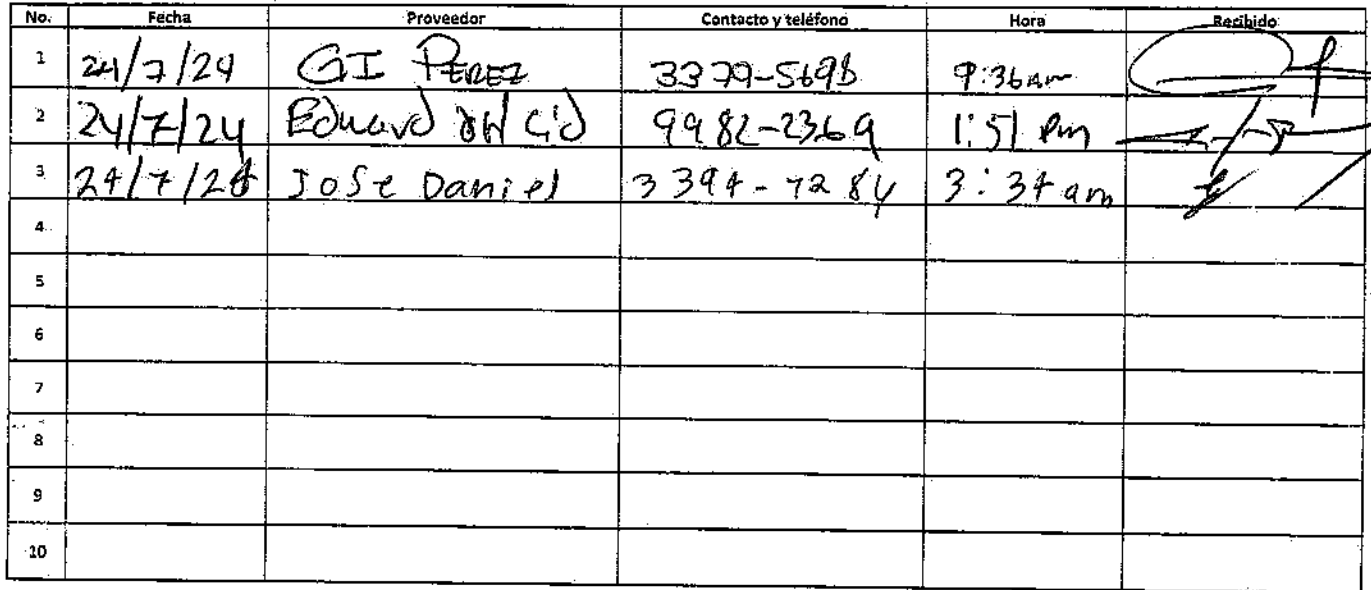 No. Fecha Proveedor Contacto y teléfono Hora Recibido
1 24/7/24 GI PEREZ 3379-5698 9:36am
2 24/7/24 Eduard del Cid 9982-2369 1:51 Pm
3 24/7/24 Jose Daniel 3394-7284 3:34 am
4
5
6
7
8
9
10